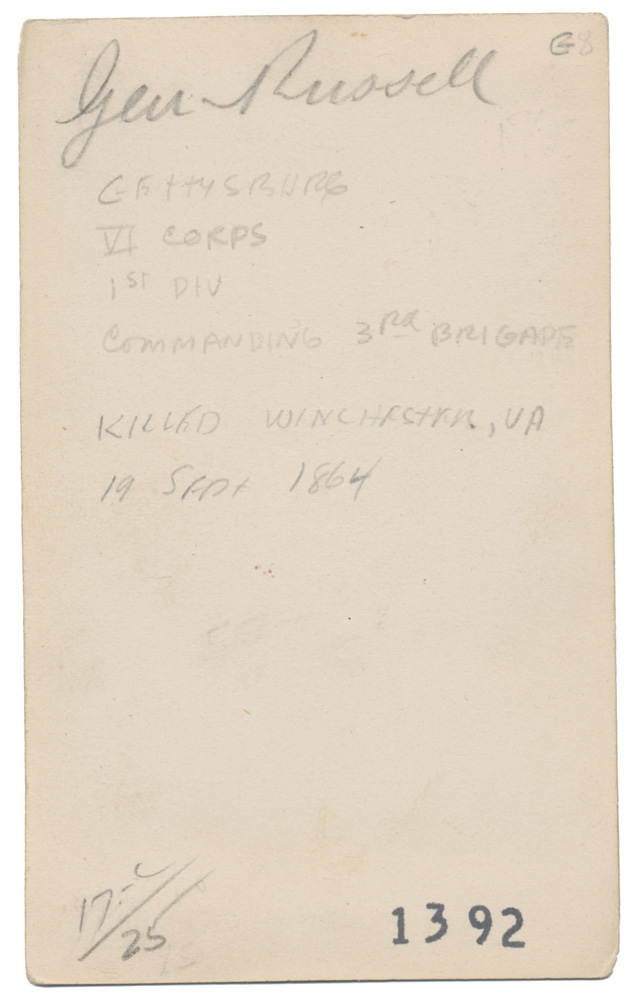 G8
Gen Russell
GETTYSBURG
VI CORPS
1ST DIV
COMMANDING 3Rd BRIGADE
KILLED WINCHESTER, VA
19 SEPT 1864
25
1392